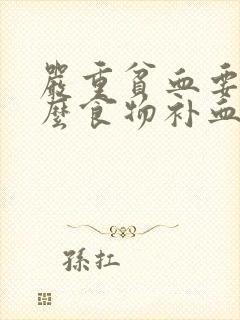 嚴重貧血要
麼食物补血
孫扛